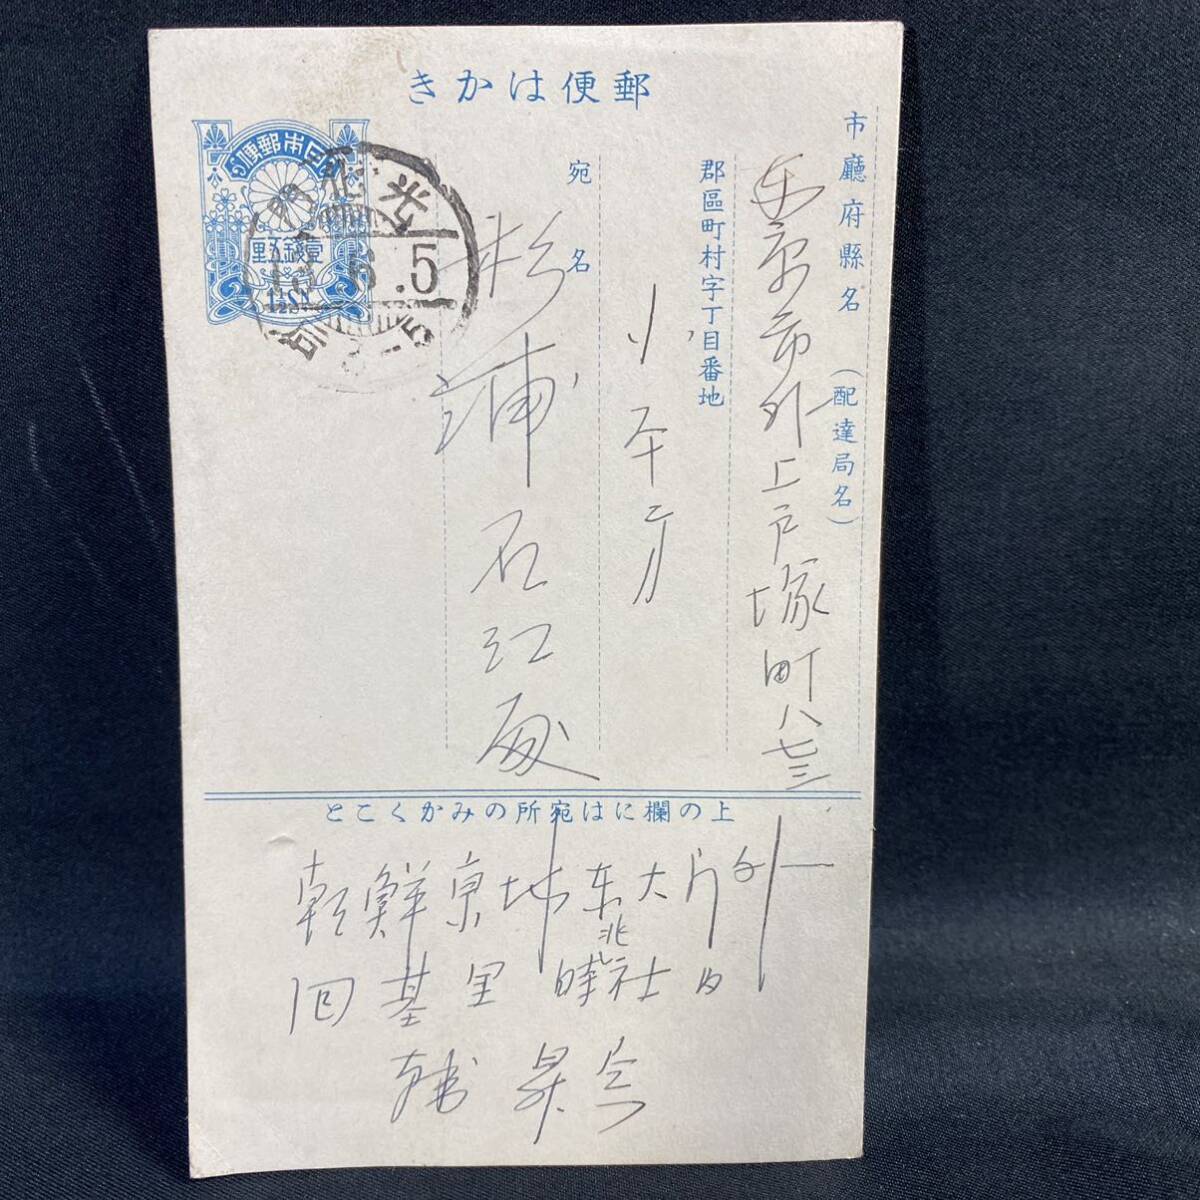 郵便はかき
市廳府縣名(配達局名)
東京市外上戸塚町八七三
郡區町村字丁目番地
小平方
宛名
杉浦石江殿
日本郵便
壹錢五厘
1½Sn
光化門
13.6.5
上の欄には宛所のみかくこと
朝鮮京城东大門外
回基里